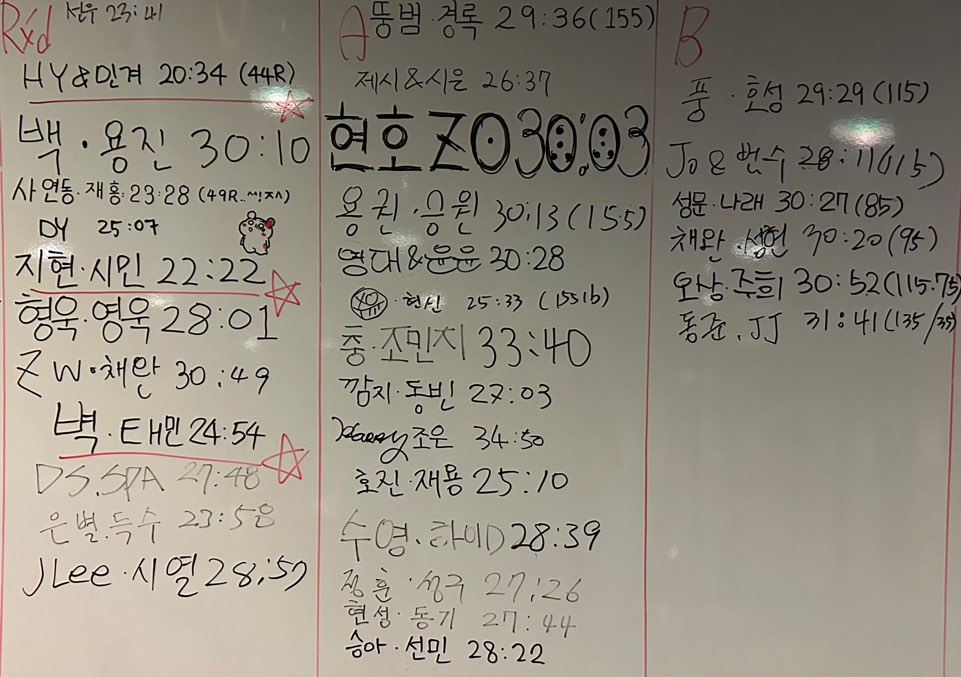 Rx'd
선우 23:41
HY&민겨 20:34 (44R)
백·용진 30:10
사 연동·재홍·23:28 (49R..^^!ㅈㅅ)
DY 25:07
지현·시민 22:22
형욱·영욱 28:01
ZW·채완 30:49
벽·태민 24:54
DS.SPA 27:48
은별.득수 23:58
JLee·시열 28:57
A
뚱범·경록 29:36(155)
제시&시은 26:37
현호 ZO 30:03
용권·승원 30:13(155)
영대&윤윤 30:28
·현신 25:33 (155lb)
충·조민지 33:40
깜지·동빈 27:03
조은 34:50
호진·재용 25:10
수영·하이D 28:39
정훈·성구 27:26
현성·동기 27:44
승아·선민 28:22
B
풍·호성 29:29(115)
Jo&번수 28:11(115)
성문·나래 30:27(85)
채완·성헌 30:20(95)
오상·주희 30:52(115.75)
동준.JJ 31:41(135/35)